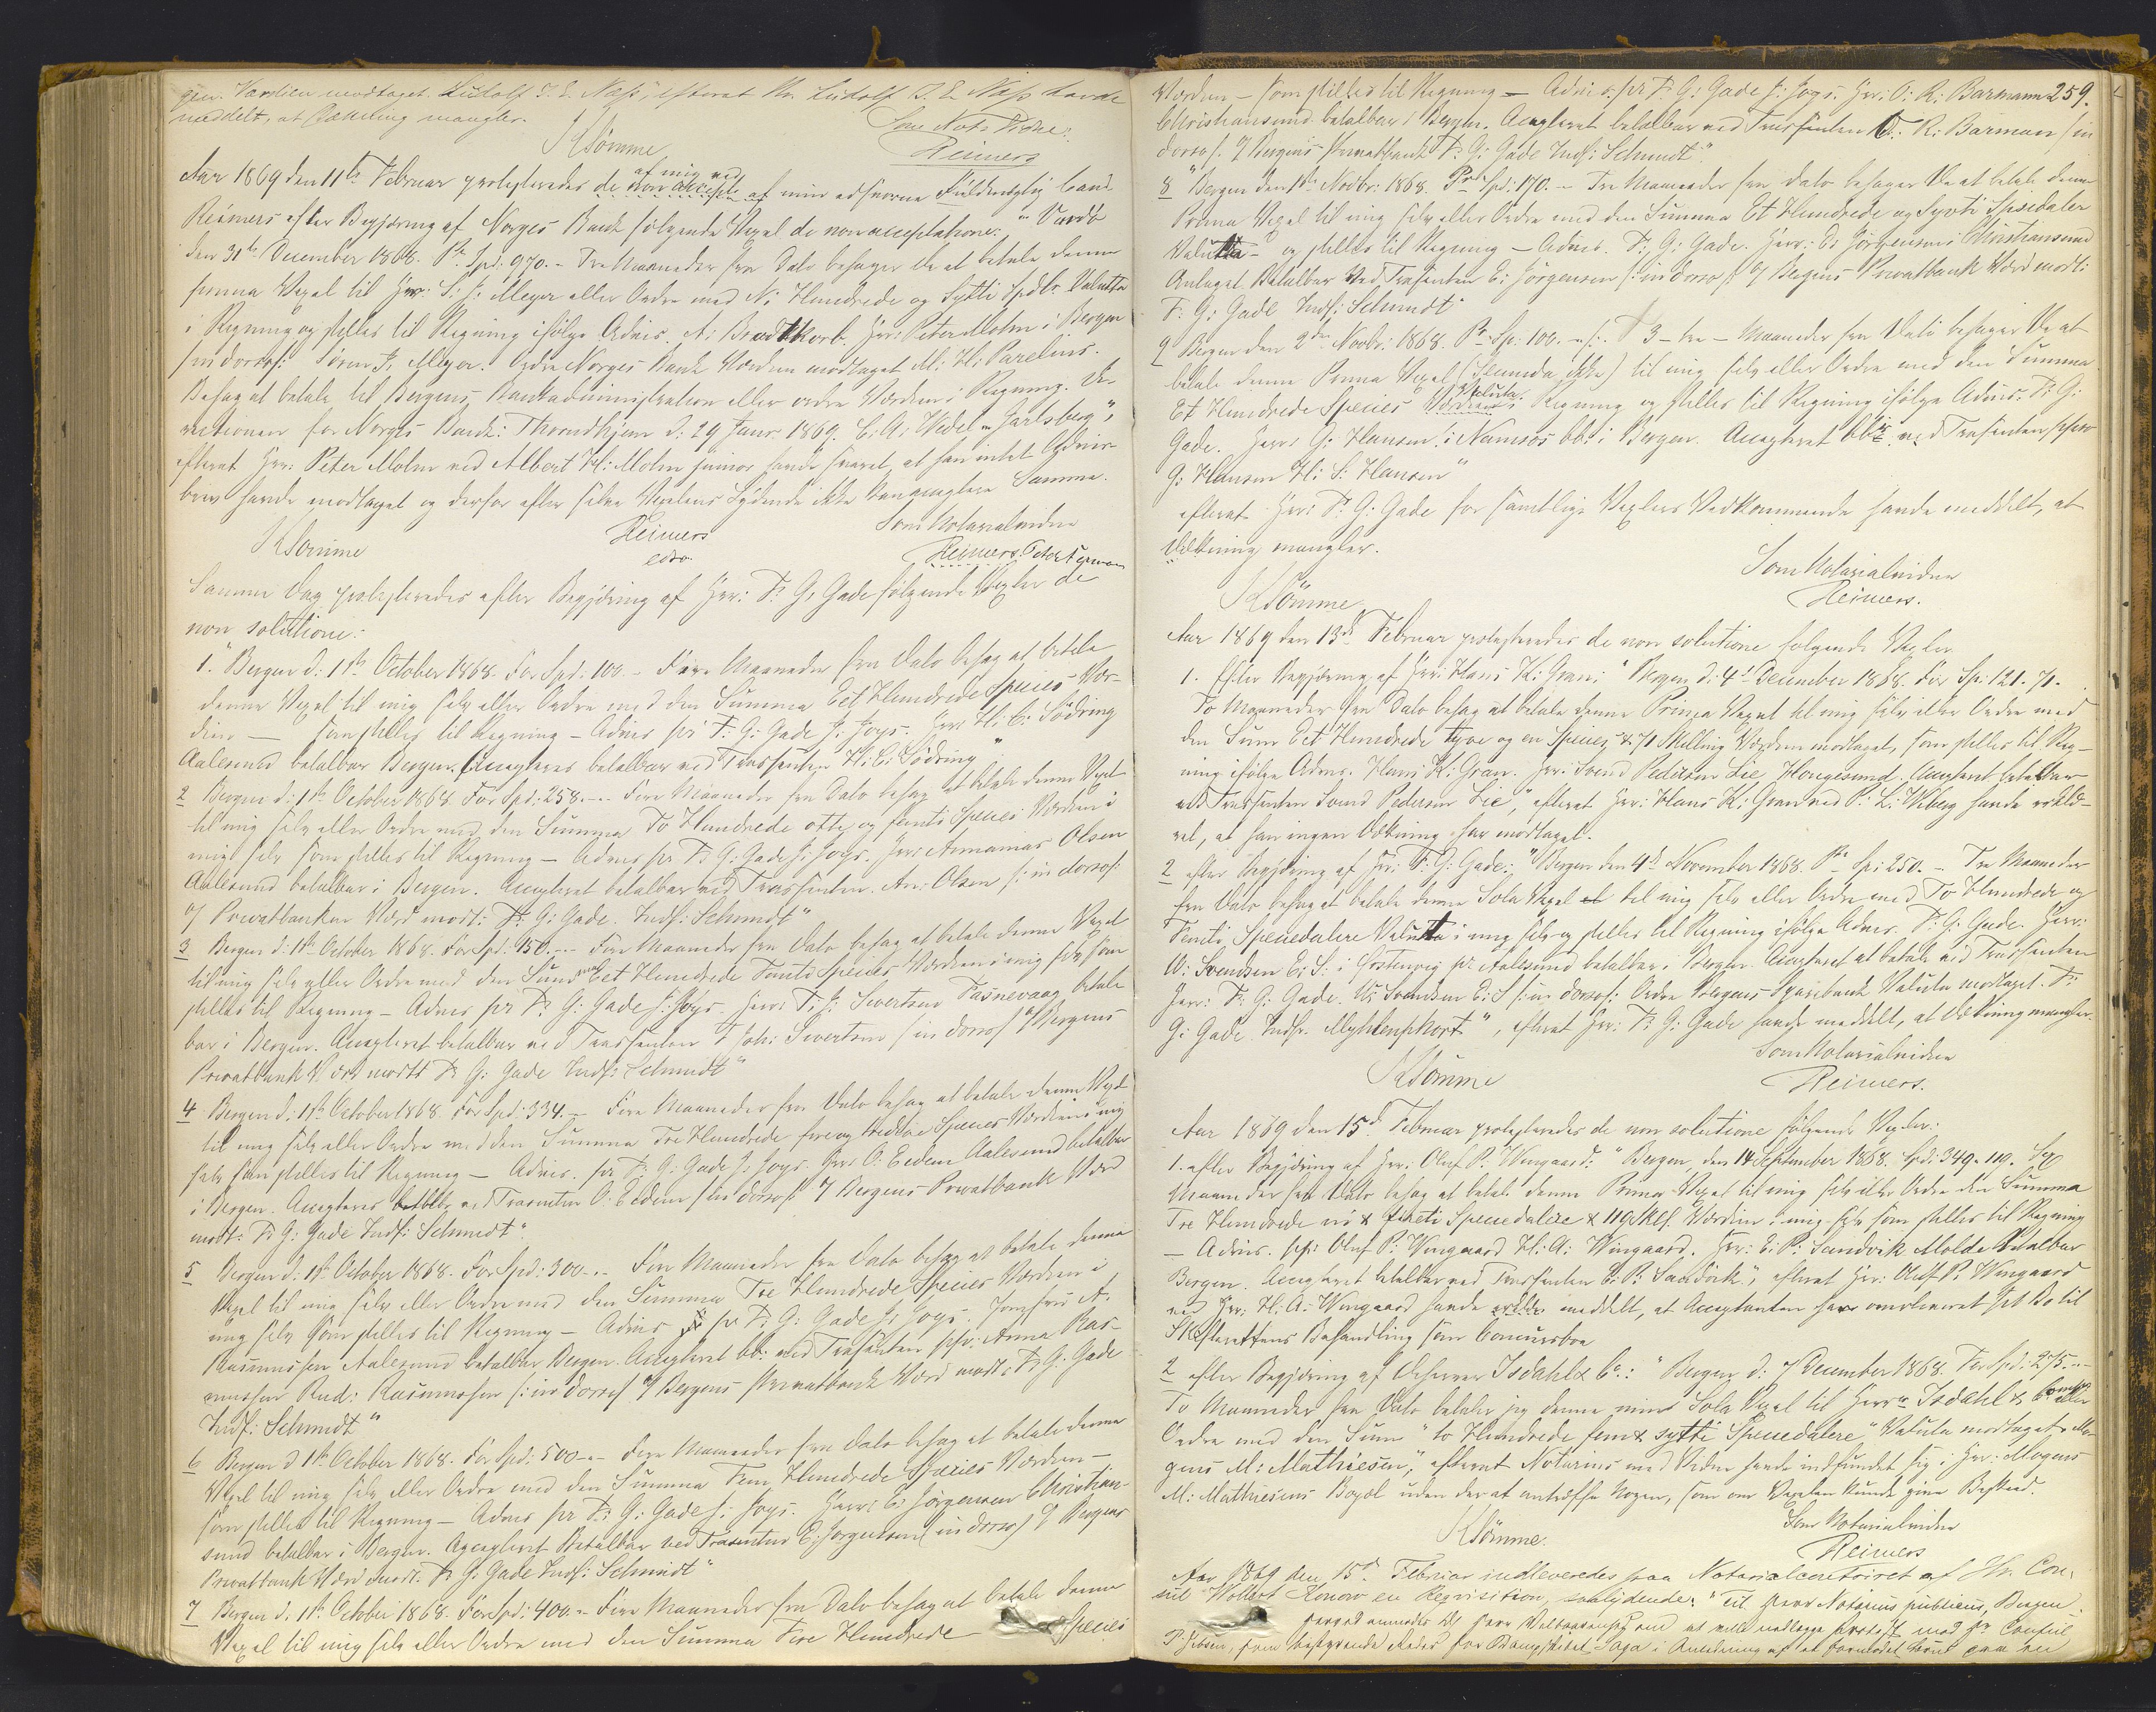 gen. Værdien modtaget. Ludolf J. E. Næss, efterat Hr. Ludolf J. E. Næss havde
meddelt, at Dækning mangler.
Som Not: Vidne:
KSömme
Reimers
af mig ved
Aar 1869 den 11te Februar protesteredes de non accepte af min edsvorne Fuldmægtig Cand.
Reimers efter Begjæring af Norges Bank følgende Vexel de non acceptatione: "Vardö
den 31te December 1868. Pr Spd: 970.- Tre Maaneder fra Dato behager De at betale denne
prima Vexel til Herr: S: J: Meyer eller Ordre med Ni Hundrede og Sytti Spdlr Valutta
i Regning og stilles til Regning ifölge Advis. A: Brodtkorb. Herr: Peter Mohn i Bergen
/in dorso/: Sören J. Meyer. Ordre Norges Bank Værdien modtaget M: H: Parelius.
Behag at betale til Bergens Bankadministration eller ordre Værdien i Regning. Di-
rectionen for Norges Bank: Throndhjem d: 29 Janr 1869. C: A: Wedel-Jarlsberg",
efterat Herr: Peter Mohn ved Albert H: Mohn junior havde svaret, at han intet Advis-
brev havde modtaget og derfor efter selve Vexelens Lydende ikke kan acceptere Samme.
Som Notarialvidne
KSömme
Reimers
edsv.
Reimers.
Samme Dag protesteredes efter Begjæring af Herr: F: G: Gade følgende Vexler de
non solutione:
1. "Bergen d: 11te October 1868. For Spd: 100.- Fire Maaneder fra Dato behag at betale
denne Vexel til mig selv eller Ordre med den Summa Eet Hundrede Species - Vær-
dien - som stilles til Regning - Advis pr F: G: Gade J: Joys. Herr H: C: Södring
Aalesund betalbar Bergen. Accepteres betalbar ved Trassenten H: C: Södring"
2 Bergen d: 11te October 1868. For Spd: 258.- Fire Maaneder fra Dato behag at betale denne Vexel
til mig selv eller Ordre med den Summa To Hundrede otte og femti Species Værdien i
mig selv som stilles til Regning - Advis pr F: G: Gade J: Joys. Herr Annanias Olsen
Aalesund betalbar i Bergen. Accepteret betalbar ved Trassenten. An: Olsen /: in dorso/:
o/ Privatbanken Værd modt: F: G: Gade. Indf: Schmidt"
3 Bergen d: 11te October 1868. For Spd: 150.- Fire Maaneder fra Dato behag at betale denne Vexel
til mig selv eller Ordre med den Summa Eet Hundrede Femti Species - Værdien i mig selv som
stilles til Regning - Advis pr F: G: Gade J: Joys. Herr: T: J: Sivertsen Tasnevaag betal-
bar i Bergen. Accepteret betalbar ved Trassenten T Joh: Sivertsen /in dorso/ o/ Bergens
Privatbank Værd modtt F: G: Gade Indf: Schmidt"
4 Bergen d: 11te October 1868. For Spd: 334.- Fire Maaneder fra Dato behag at betale denne Vexel
til mig selv eller Ordre med den Summa Tre Hundrede fire og tredive Species Værdien i mig
selv som stilles til Regning - Advis. pr F: G: Gade J: Joys. Herr O: Eeden Aalesund betalbar
i Bergen. Accepteres betalb: ved Trasenten O: Eeden /in dorso/ o/ Bergens Privatbank Værd
modt: F: G: Gade Indf: Schmidt".
5 Bergen d: 11te October 1868. For Spd: 300.- Fire Maaneder fra Dato behag at betale denne
Vexel til mig selv eller Ordre med den Summa Tre Hundrede Species Værdien i
mig selv som stilles til Regning - Advis pr F: G: Gade J: Joys. Jomfru A.
Rasmussen Aalesund betalbar Bergen. Accepteret bb: ved Trasenten pp: Anna Ras-
mussen Rud: Rasmussen /: in dorso/ o/ Bergens Privatbank Værd modt: F: G: Gade
Indf: Schmidt"
6 Bergen d 11te October 1868. For Spd: 500.- Fire Maaneder fra Dato behag at betale denne
Vexel til mig selv eller Ordre med den Summa Fem Hundrede Species Værdien -
som stilles til Regning - Advis pr F: G: Gade J. Joys. Herr: E: Jörgensen Christian-
sund betalbar i Bergen. Accepteret Betalbar ved Trasenten E: Jorgensen /in dorso/ o/ Bergens
Privatbank Værd modt. F: G: Gade Indf: Schmidt"
7 Bergen d: 11te October 1868. For Spd: 400.- Fire Maaneder fra Dato behag at betale denne
Vexel til mig selv eller Ordre med den Summa Fire Hundrede Species
Værdien - som stilles til Regning - Advis pr F: G: Gade J: Joys. Herr: O: R: Barmann 259.
Christiansund betalbar i Bergen. Accepteret betalbar ved Trassenten O: R: Barman /in
dorso/. o/ Bergens Privatbank F: G: Gade Indf: Schmidt".
8 "Bergen den 11te Novbr: 1868. Pr Spd: 170.- Tre Maaneder fra dato behager De at betale denne
Prima Vexel til mig selv eller Ordre med den Summa Et Hundrede og Sytti Spesidaler
Valutta - og stilles til Regning - Advis. F: G: Gade. Herr: E: Jörgensen Christiansund
Antaget Betalbar Ved Trasenten E: Jörgensen /: in dorso /: o/ Begens Privatbank Værd modt:
F: G: Gade Indf: Schmidt"
9 Bergen den 2den Novbr: 1868. Pr Sp: 100.- 3 - tre - Maaneder fra Dato behager De at
betale denne Prima Vexel (Secunda ikke) til mig selv eller Ordre med den Summa
Valuta
Et Hundrede Species Værdien i Regning og stilles til Regning ifölge Advis. F: G:
Gade. Herr: G: Hansen i Namsos bb: i Bergen. Accepteret bbr ved Trasenten
G: Hansen H: S: Hansen"
efterat Herr: F: G: Gade for samtlige Vexlers Vedkommende havde meddelt, at
Dækning mangler.
Som Notarialvidne
KSömme
Reimers.
Aar 1869 den 13de Februar protesteredes de non solutione følgende Vexler
1. Efter Begjæring af Herr: Hans K: Gran: "Bergen d: 4de December 1868. For Sp: 121.71.
To Maaneder fra Dato behag at betale denne Prima Vexel til mig selv eller Ordre med
den Sum Eet Hundrede tyve og en Species & 71 Skilling Værdien modtaget, som stilles til Reg-
ning ifölge Advis. Hans K: Gran. Herr: Svend Pedersen Lie Hougesund. Accepteret betalbar
ved Trassenten Svend Pedersen Lie", efterat Herr: Hans K: Gran ved P: L: Wiberg havde erklæ-
ret, at han ingen Dækning har modtaget.
2 efter Begjæring af Herr: F: G: Gade: "Bergen den 4de November 1868. Pr Sp: 250.- Tre Maaneder
fra Dato behag at betale denne Sola Vexel til mig selv eller Ordre med To Hundrede og
Femti Speciedalere Valutta i mig selv og stilles til Regning ifölge Advis. F: G: Gade. Herr:
W: Svendsen E: S: i pr Aalesund betalbar i Bergen. Accepteret at betale ved Trassenten
Herr: F: G: Gade. W: Svendsen E: S /: in dorso/: Ordre Bergens Sparebank Valuta modtaget. F:
G: Gade Indf: Myhlenphort", efterat Hr: F: G: Gade havde meddelt, at Dækning mangler.
Som Notarialvidne
KSömme
Reimers.
Aar 1869 den 15de Februar protesteredes de non solutione følgende Vexler:
1. efter Begjæring af Hr: Oluf P. Wingaard: "Bergen, den 14 September 1868. Spd: 349.119. Sex
Maaneder fra Dato behag at betale denne Prima Vexel til mig selv eller Ordre den Summa
Tre Hundrede ni & firti Speciedalere & 119 Skl. Værdien i mig selv som stilles til Regning
- Advis. pp: Oluf P: Wingaard H: A: Wingaard. Herr: E: P: Sandvik Molde Betalbar
Bergen. Accepteret betalbar ved Trassenten E: P: Sandvik", efterat Herr: Oluf P. Wingaard
ved Hr: H: A: Wingaard havde meddelt, at Acceptanten har overleveret sit Bo til
Skifterettens Behandling som Concursbo
2 efter Begjæring af Dherrer Isdahl & Co: "Bergen d: 7 December 1868. For Spd: 275.-
To Maaneder fra Dato betaler jeg denne min Sola Vexel til Herrr Isdahl & Comp eller
Ordre med den Sum "to Hundrede fem & sytti Speciedalere" Valuta modtaget. Mo-
gens M: Mathiesen", efterat Notarius med Vidne havde indfundet sig i Hr: Mogens
M: Mathiesens Bopæl uden der at antræffe Nogen, som om Vexelen kunde give Besked.
Som Notarialvidne
KSömme.
Reimers
Aar 1869 den 15de Februar indleveredes paa Notarialcontoiret af Hr. Con-
sul Wollert Konow en Reqvisition, saalydende: "Til Herr Notarius publicus, Bergen.
Herved anmodes De Herr om at ville nedlægge Protest mod Hr Consul
P. Jebsen, som bestyrende Reder for Dampskibet Saga i Anledning af et formodet Havari paa en